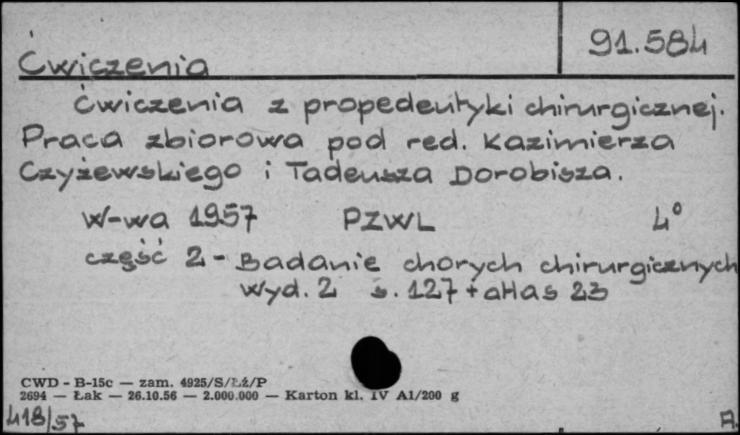 Ćwiczenia
91.584
Ćwiczenia z propedeutyki chirurgicznej.
Praca zbiorowa pod red. Kazimierza
Czyżewskiego i Tadeusza Dorobisza.
W-wa 1957 PZWL 4°
część 2 - Badanie chorych chirurgicznych
Wyd. 2 s. 127 + atlas 23
CWD - B-15c — zam. 4925/S/Łź/P
2694 — Łak — 26.10.56 — 2.000.000 — Karton kl. IV A1/200 g
418/57 A.